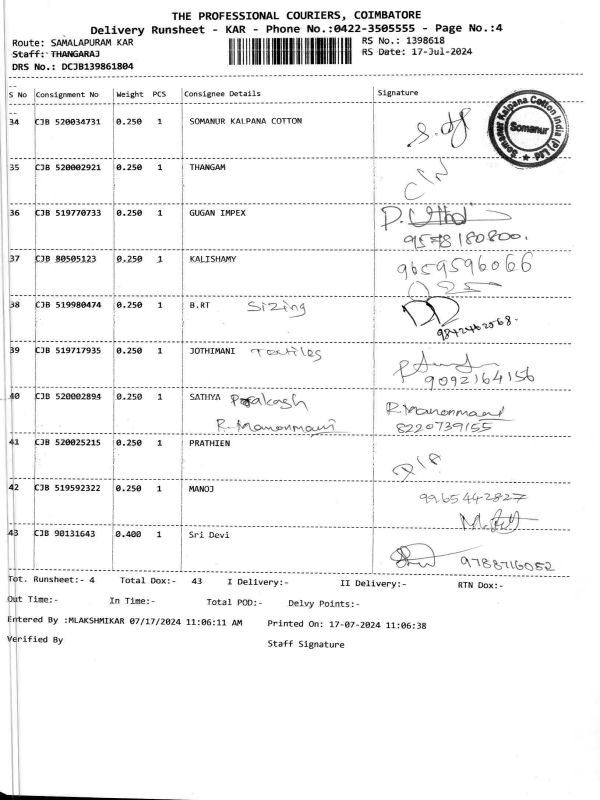 THE PROFESSIONAL COURIERS, COIMBATORE
Delivery Runsheet - KAR - Phone No.:0422-3505555 - Page No.:4
Route: SAMALAPURAM KAR
RS No.: 1398618
Staff: THANGARAJ
RS Date: 17-Jul-2024
DRS No.: DCJB139861804
S No Consignment No Weight PCS Consignee Details Signature
34 CJB 520034731 0.250 1 SOMANUR KALPANA COTTON
Somanur Kalpana Cotton India (P) Ltd
Somanur
35 CJB 520002921 0.250 1 THANGAM
36 CJB 519770733 0.250 1 GUGAN IMPEX
9578180800.
37 CJB 80505123 0.250 1 KALISHAMY 9659596066
38 CJB 519980474 0.250 1 B.RT Sizing
9842462568.
39 CJB 519717935 0.250 1 JOTHIMANI Textiles
9092164156
40 CJB 520002894 0.250 1 SATHYA Prakash R.Manonmani
R.Manonmani 8220739155
41 CJB 520025215 0.250 1 PRATHIEN
42 CJB 519592322 0.250 1 MANOJ 9965442827
43 CJB 90131643 0.400 1 Sri Devi
9788716052
Tot. Runsheet:- 4 Total Dox:- 43 I Delivery:- II Delivery:- RTN Dox:-
Out Time:- In Time:- Total POD:- Delvy Points:-
Entered By :MLAKSHMIKAR 07/17/2024 11:06:11 AM Printed On: 17-07-2024 11:06:38
Verified By Staff Signature